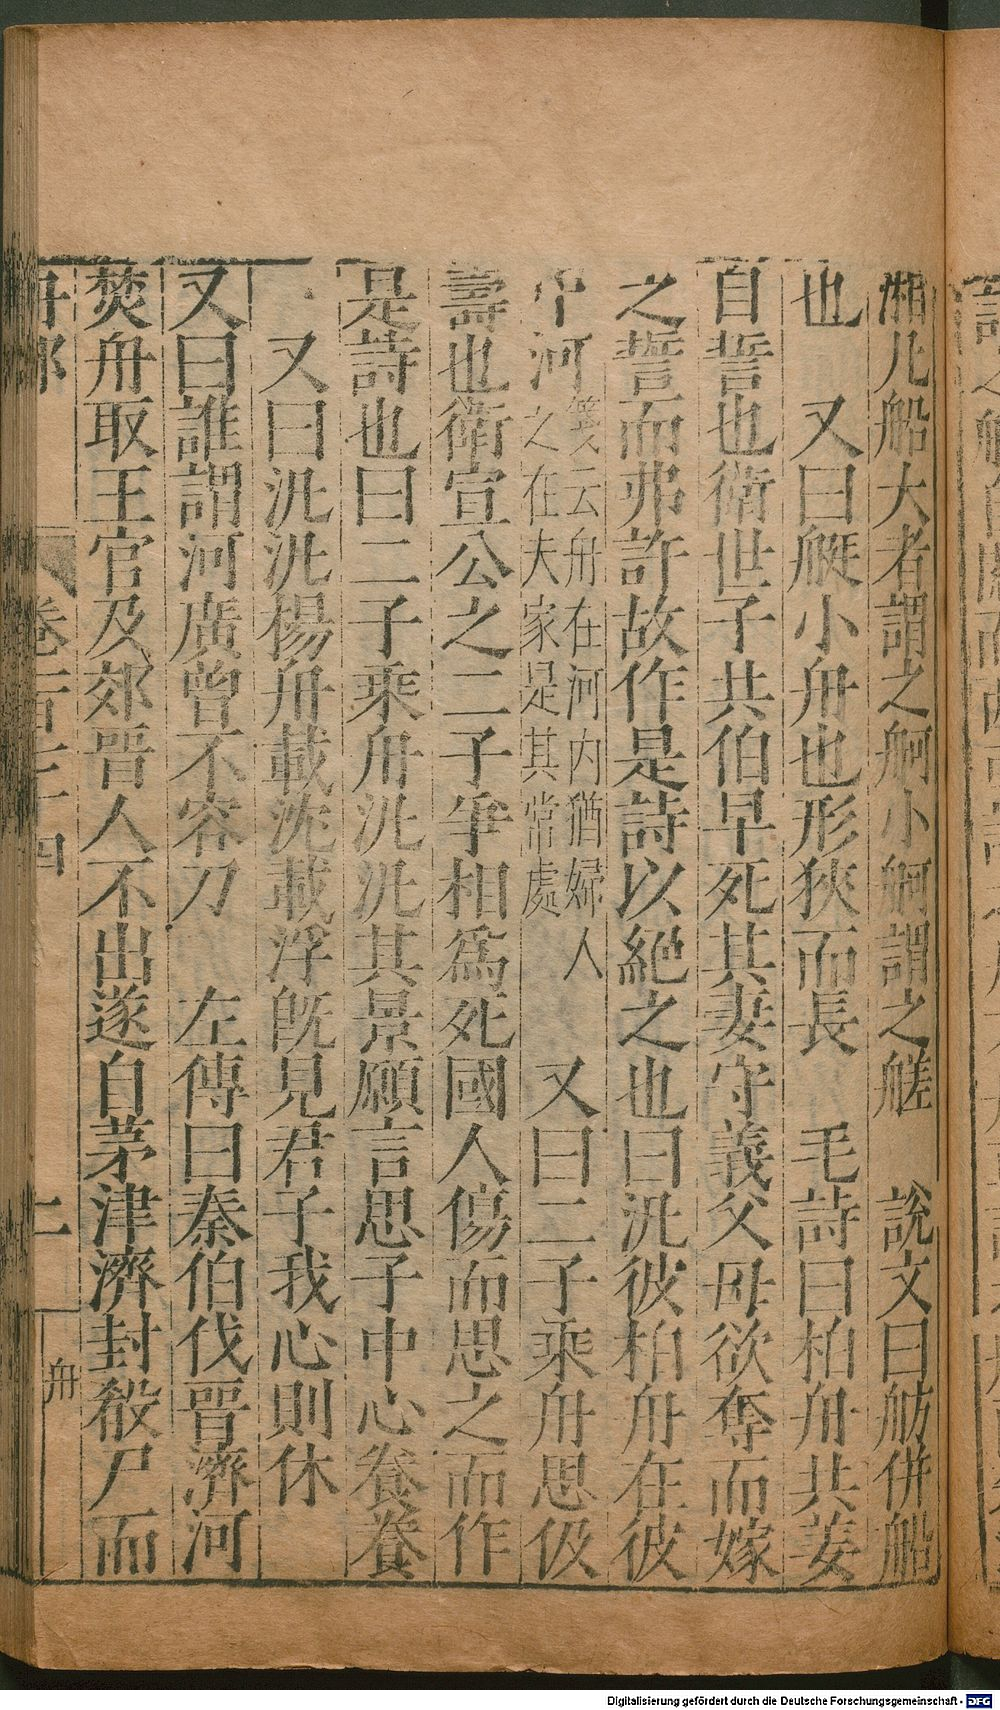 湘凡船大者謂之舸小舸謂之艖　說文曰舫併船
也　又曰艇小舟也形狹而長　毛詩曰柏舟共姜
自誓也衛世子共伯早死其妻守義父母欲奪而嫁
之誓而弗許故作是詩以絕之也曰汎彼柏舟在彼
中河
箋云舟在河內猶婦人
之在夫家是其常處
又曰二子乘舟思伋
壽也衛宣公之二子爭相爲死國人傷而思之而作
是詩也曰二子乘舟汎汎其景願言思子中心養養
又曰汎汎楊舟載沈載浮旣見君子我心則休
又曰誰謂河廣曾不容刀　左傳曰秦伯伐晉濟河
焚舟取王官及郊晉人不出遂自茅津濟封殽尸而
卷
二
舟
Digitalisierung gefördert durch die Deutsche Forschungsgemeinschaft - DFG